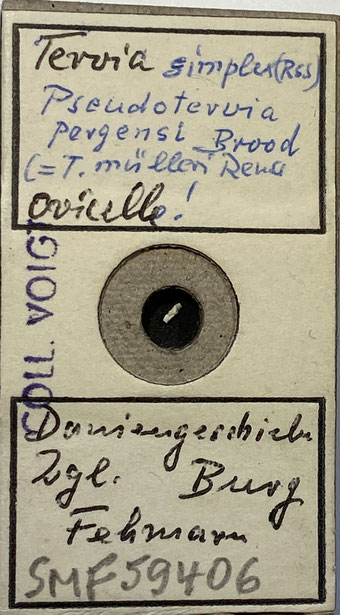 Tervia simplex (Rss)
Pseudotervia
pergensi Brood
(= T. mülleri
Ovicelle!
COLL. VOIGT
Daniengeschiebe
Zgl. Burg
Fehmarn
SMF 59406